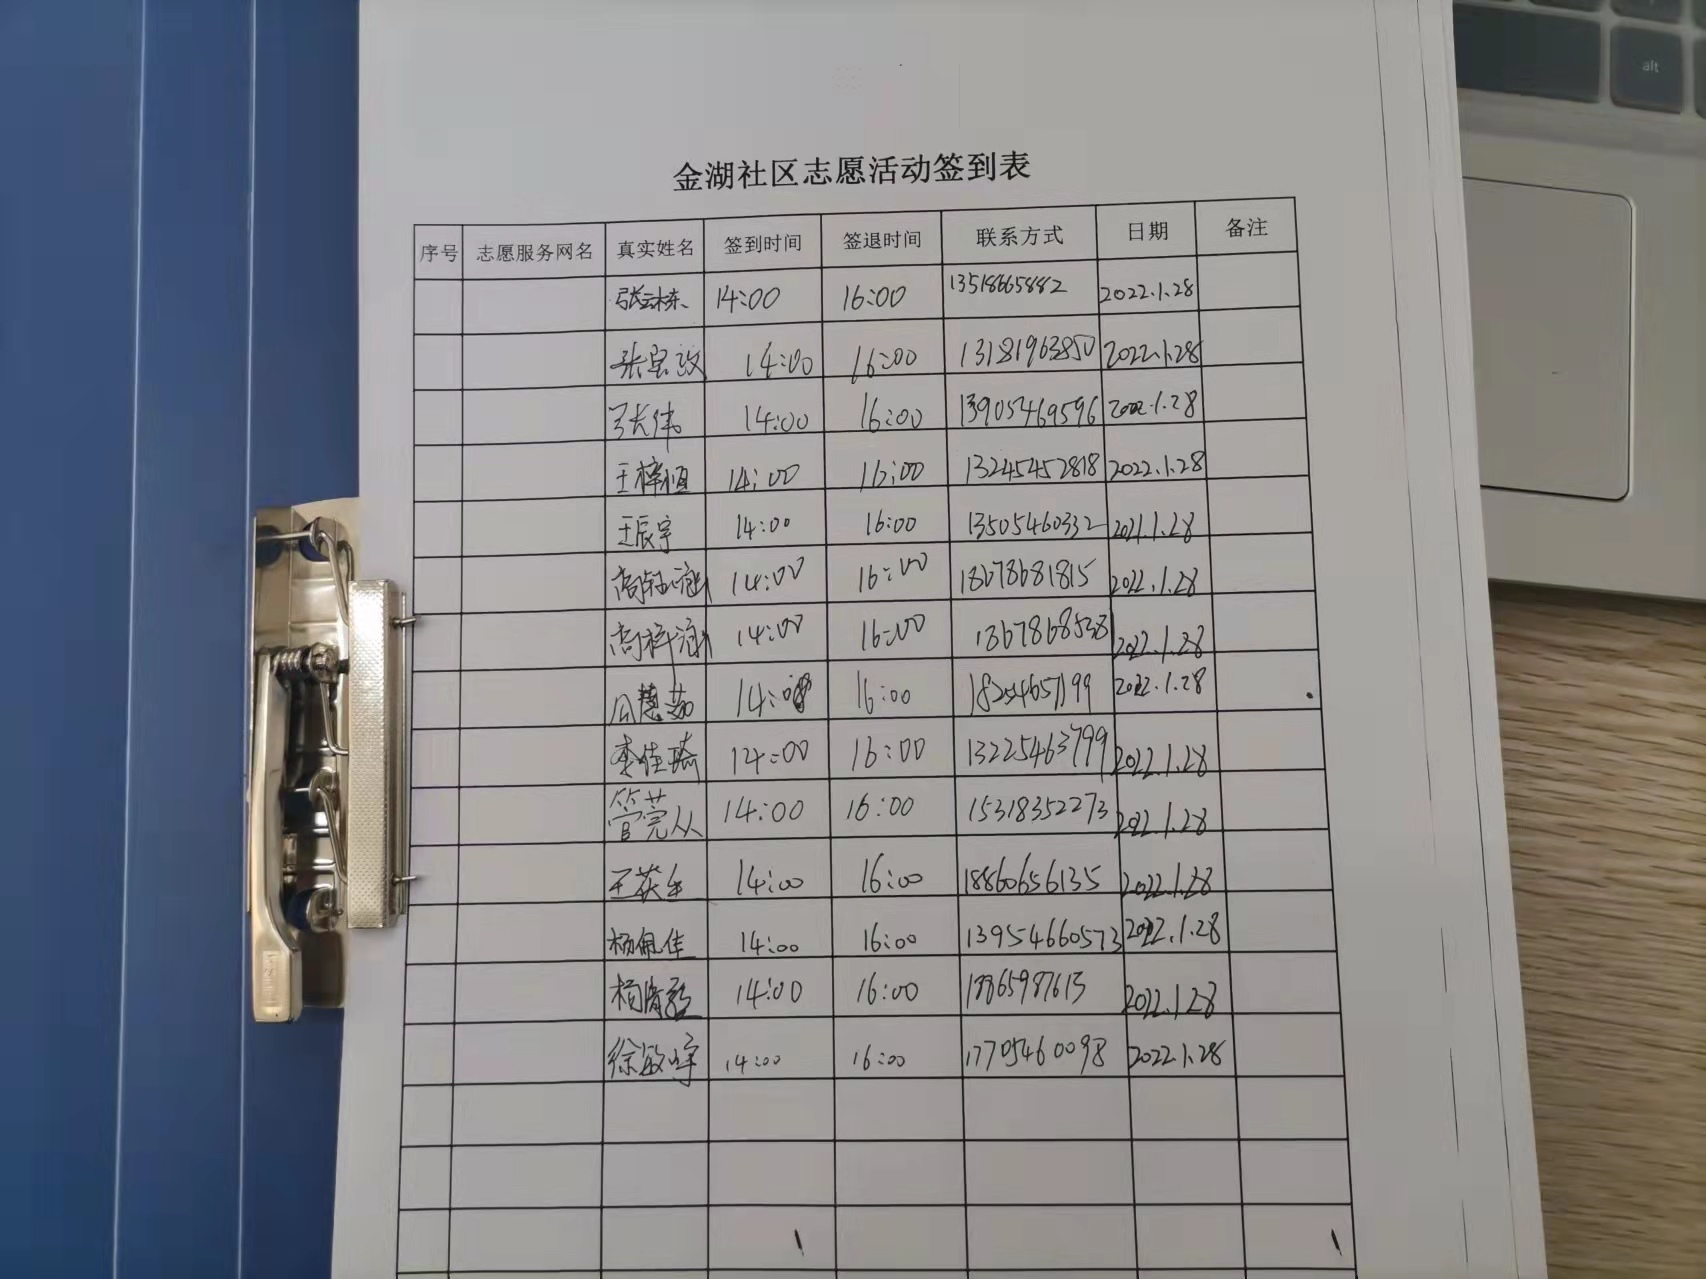 alt
金湖社区志愿活动签到表
序号 志愿服务网名 真实姓名 签到时间 签退时间 联系方式 日期 备注
14:00 16:00 13518665882 2022.1.28
14:00 16:00 13181963850 2022.1.28
张伟 14:00 16:00 13905469596 2022.1.28
王梓恒 14:00 16:00 13245452818 2022.1.28
王辰宇 14:00 16:00 13505460332 2021.1.28
14:00 16:00 18678681815 2022.1.28
14:00 16:00 18678685381 2022.1.28
16:00 18254657199 2022.1.28
李佳琦 14:00 16:00 13225463799 2022.1.28
管莞从 14:00 16:00 15318352273 2022.1.28
14:00 16:00 18860656135 2022.1.28
杨佩佳 14:00 16:00 13954660573 2022.1.28
14:00 16:00 2022.1.28
14:00 16:00 17705460098 2022.1.28